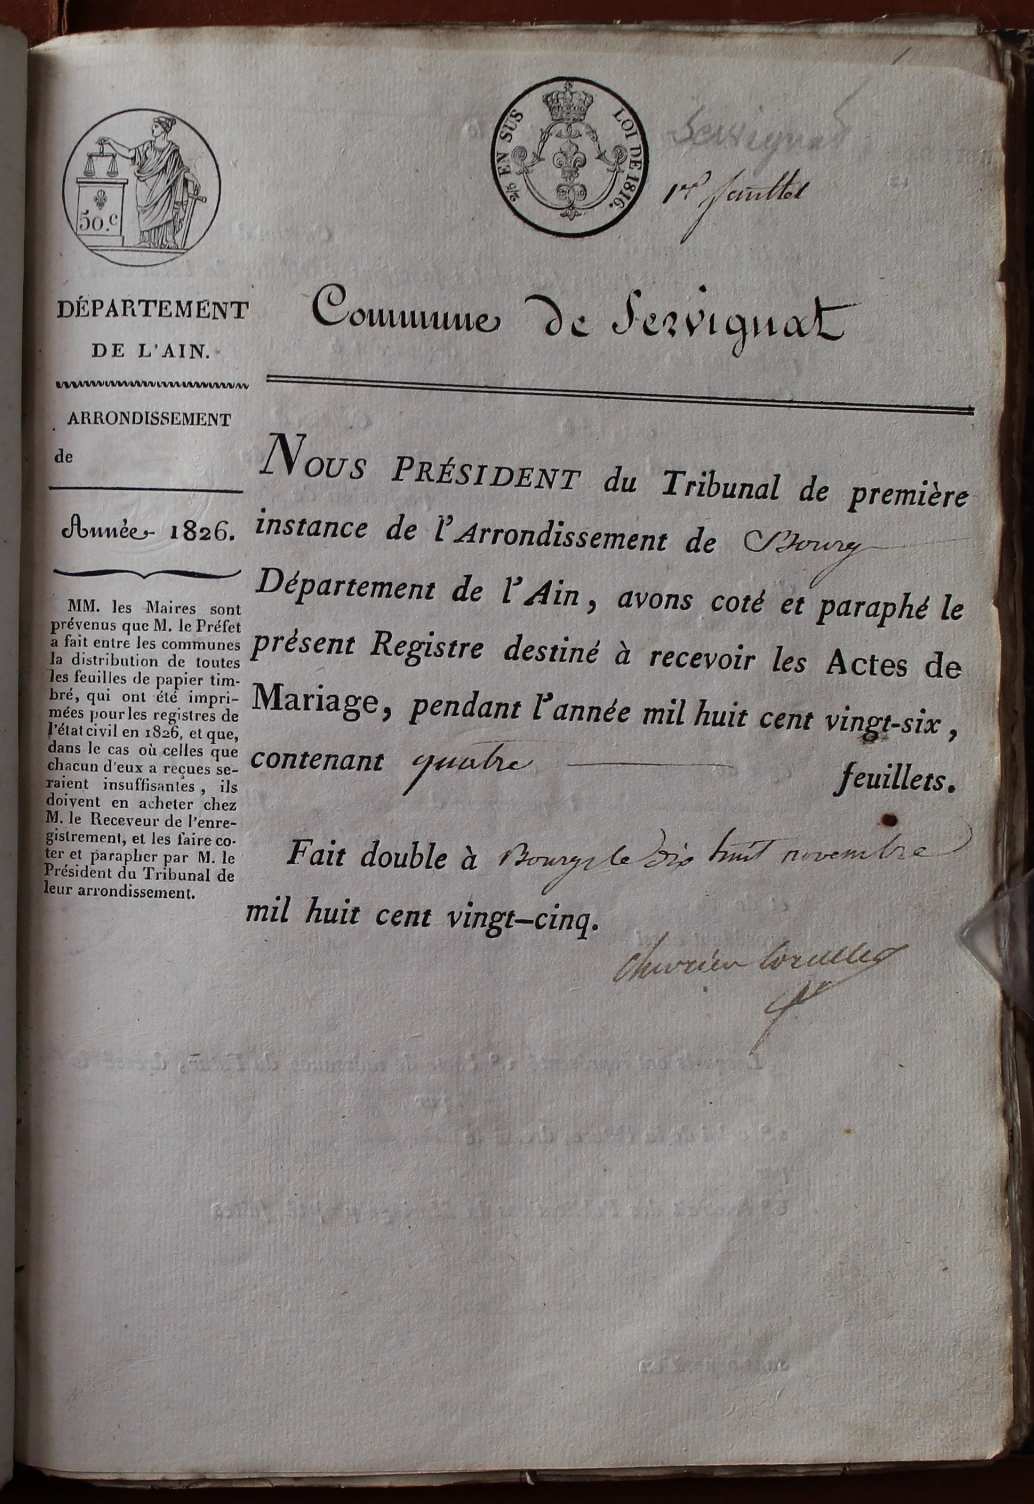 Servignat
1er feuillet
2/5 EN SUS
LOI DE 1816.
50.c
DÉPARTEMENT
DE L'AIN.
ARRONDISSEMENT
de
Année 1826.
MM. les Maires sont
prévenus que M. le Préfet
a fait entre les communes
la distribution de toutes
les feuilles de papier tim-
bré, qui ont été impri-
mées pour les registres de
l'état civil en 1826, et que,
dans le cas où celles que
chacun d'eux a reçues se-
raient insuffisantes, ils
doivent en acheter chez
M. le Receveur de l'enre-
gistrement, et les faire co-
ter et parapher par M. le
Président du Tribunal de
leur arrondissement.
Commune de Servignat
NOUS PRÉSIDENT du Tribunal de première
instance de l'Arrondissement de Bourg
Département de l'Ain, avons coté et paraphé le
présent Registre destiné à recevoir les Actes de
Mariage, pendant l'année mil huit cent vingt-six,
contenant quatre feuillets.
Fait double à Bourg le dix huit novembre
mil huit cent vingt-cinq.